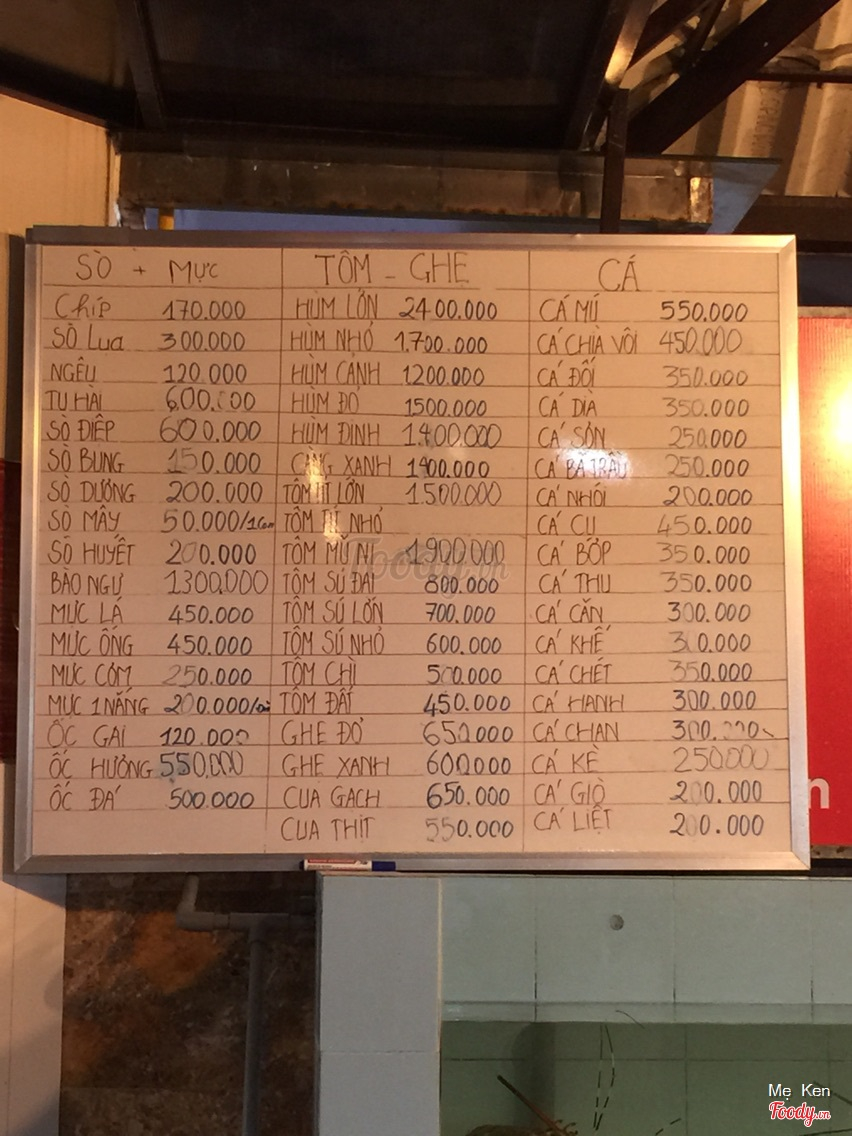 SÒ + MỰC TÔM - GHẸ CÁ
Chíp 170.000 HÙM LỚN 2400.000 CÁ MÚ 550.000
SÒ Lụa 300.000 HÙM NHỎ 1.700.000 CÁ CHÌA VÔI 450.000
NGÊU 120.000 HÙM CÁNH 1200.000 CÁ ĐỐI 350.000
TU HÀI 600.000 HÙM ĐỎ 1500.000 CÁ DÌA 350.000
SÒ ĐIỆP 600.000 HÙM ĐINH 1.400.000 CÁ SƠN 250.000
SÒ BUNG 150.000 CÀNG XANH 1400.000 CÁ BÃ TRẦU 250.000
SÒ DƯƠNG 200.000 TÔM TÍT LỚN 1.500.000 CÁ NHÓI 200.000
SÒ MÂY 50.000/1Con TÔM TÍT NHỎ CÁ CU 450.000
SÒ HUYẾT 200.000 TÔM MŨ NI 1900.000 CÁ BỚP 350.000
BÀO NGƯ 1300.000 TÔM SÚ ĐẠI 800.000 CÁ THU 350.000
MỰC LÁ 450.000 TÔM SÚ LỚN 700.000 CÁ CĂN 300.000
MỰC ỐNG 450.000 TÔM SÚ NHỎ 600.000 CÁ KHẾ
MỰC CƠM 250.000 TÔM CHÌ 500.000 CÁ CHÉT 350.000
MỰC 1 NẮNG 200.000 TÔM ĐẤT 450.000 CÁ HANH 300.000
ỐC GAI 120.000 GHẸ ĐỎ 650.000 CÁ CHAN 300.000
ỐC HƯƠNG 550.000 GHẸ XANH 600.000 CÁ KÈ 250.000
ỐC ĐÁ 500.000 CUA GẠCH 650.000 CÁ GIÒ 200.000
CUA THỊT 550.000 CÁ LIỆT 200.000
Foody.vn
Mẹ Ken
Foody.vn